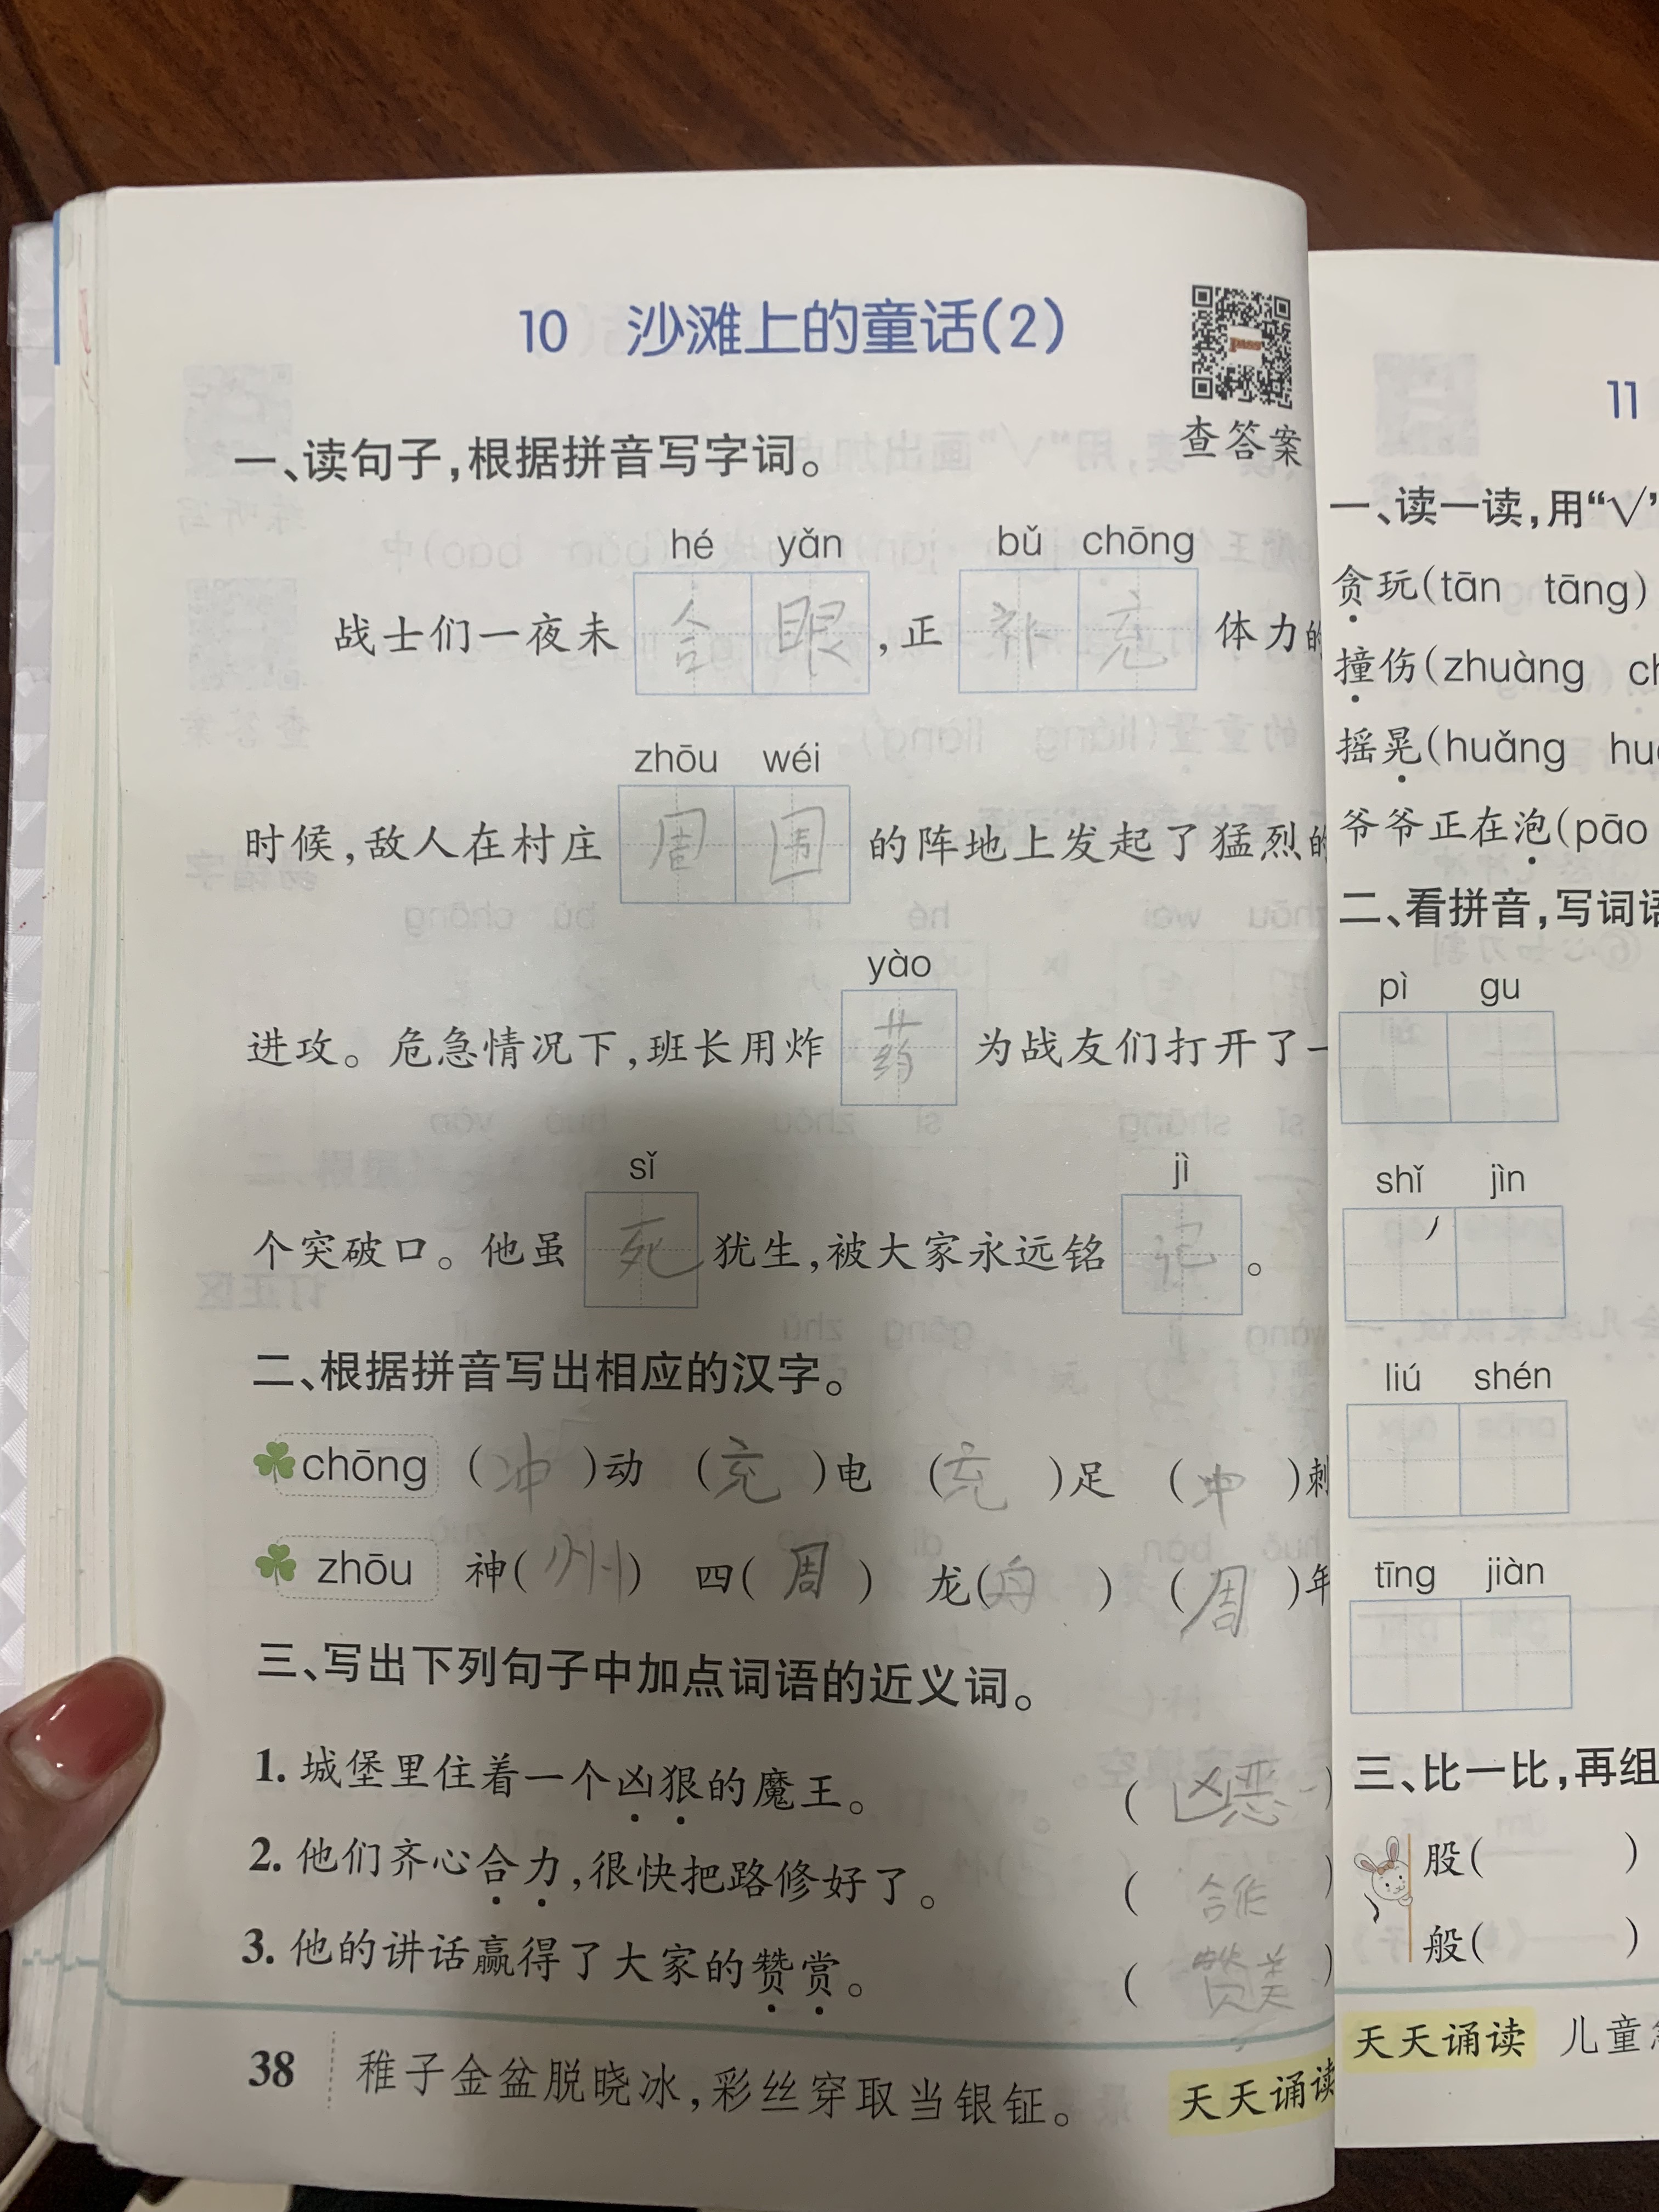 10 沙滩上的童话(2)
查答案
一、读句子,根据拼音写字词。
hé yǎn bǔ chōng
战士们一夜未合眼,正补充体力的
zhōu wéi
时候,敌人在村庄周围的阵地上发起了猛烈的
yào
进攻。危急情况下,班长用炸药为战友们打开了一
sǐ jì
个突破口。他虽死犹生,被大家永远铭记。
二、根据拼音写出相应的汉字。
chōng (冲)动 (充)电 (充)足 (冲)刺
zhōu 神(州) 四(周) 龙(舟) (周)年
三、写出下列句子中加点词语的近义词。
1. 城堡里住着一个凶狠的魔王。 (凶恶)
2. 他们齐心合力,很快把路修好了。 (合作)
3. 他的讲话赢得了大家的赞赏。 (赞美)
38 稚子金盆脱晓冰,彩丝穿取当银钲。 天天诵读
11
一、读一读,用“√”
贪玩(tān tāng)
撞伤(zhuàng ch
摇晃(huǎng hu
爷爷正在泡(pāo
二、看拼音,写词语
pì gu
shǐ jìn
liú shén
tīng jiàn
三、比一比,再组
股( )
般( )
天天诵读 儿童